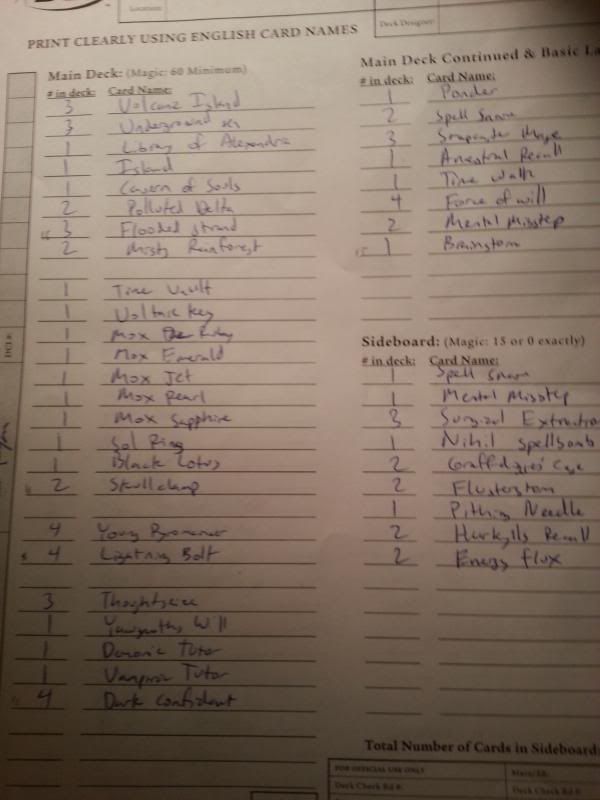 Location:
Deck Designer:
PRINT CLEARLY USING ENGLISH CARD NAMES
Main Deck: (Magic: 60 Minimum)
# in deck: Card Name:
3 Volcanic Island
3 Underground sea
1 Library of Alexandria
1 Island
1 Cavern of Souls
2 Polluted Delta
3 Flooded strand
2 Misty Rainforest
1 Time Vault
1 Voltaic key
1 Mox Ruby
1 Mox Emerald
1 Mox Jet
1 Mox Pearl
1 Mox Sapphire
1 Sol Ring
1 Black Lotus
2 Skullclamp
4 Young Pyromancer
4 Lightning Bolt
3 Thoughtseize
1 Yawgmoths Will
1 Demonic Tutor
1 Vampiric Tutor
4 Dark Confidant
Main Deck Continued & Basic La
# in deck: Card Name:
1 Ponder
2 Spell Snare
3 Snapcaster Mage
1 Ancestral Recall
1 Time Walk
4 Force of will
2 Mental Misstep
15 1 Brainstorm
Sideboard: (Magic: 15 or 0 exactly)
# in deck: Card Name:
1 Spell Snare
1 Mental Misstep
3 Surgical Extractio
1 Nihil Spellbomb
2 Graffdiggers Cage
2 Flusterstorm
1 Pithing Needle
2 Hurkylls Recall
2 Energy flux
Total Number of Cards in Sideboard:
FOR OFFICIAL USE ONLY
Deck Check Rd #:
Main/SB:
Deck Check Rd #:
DCI #: